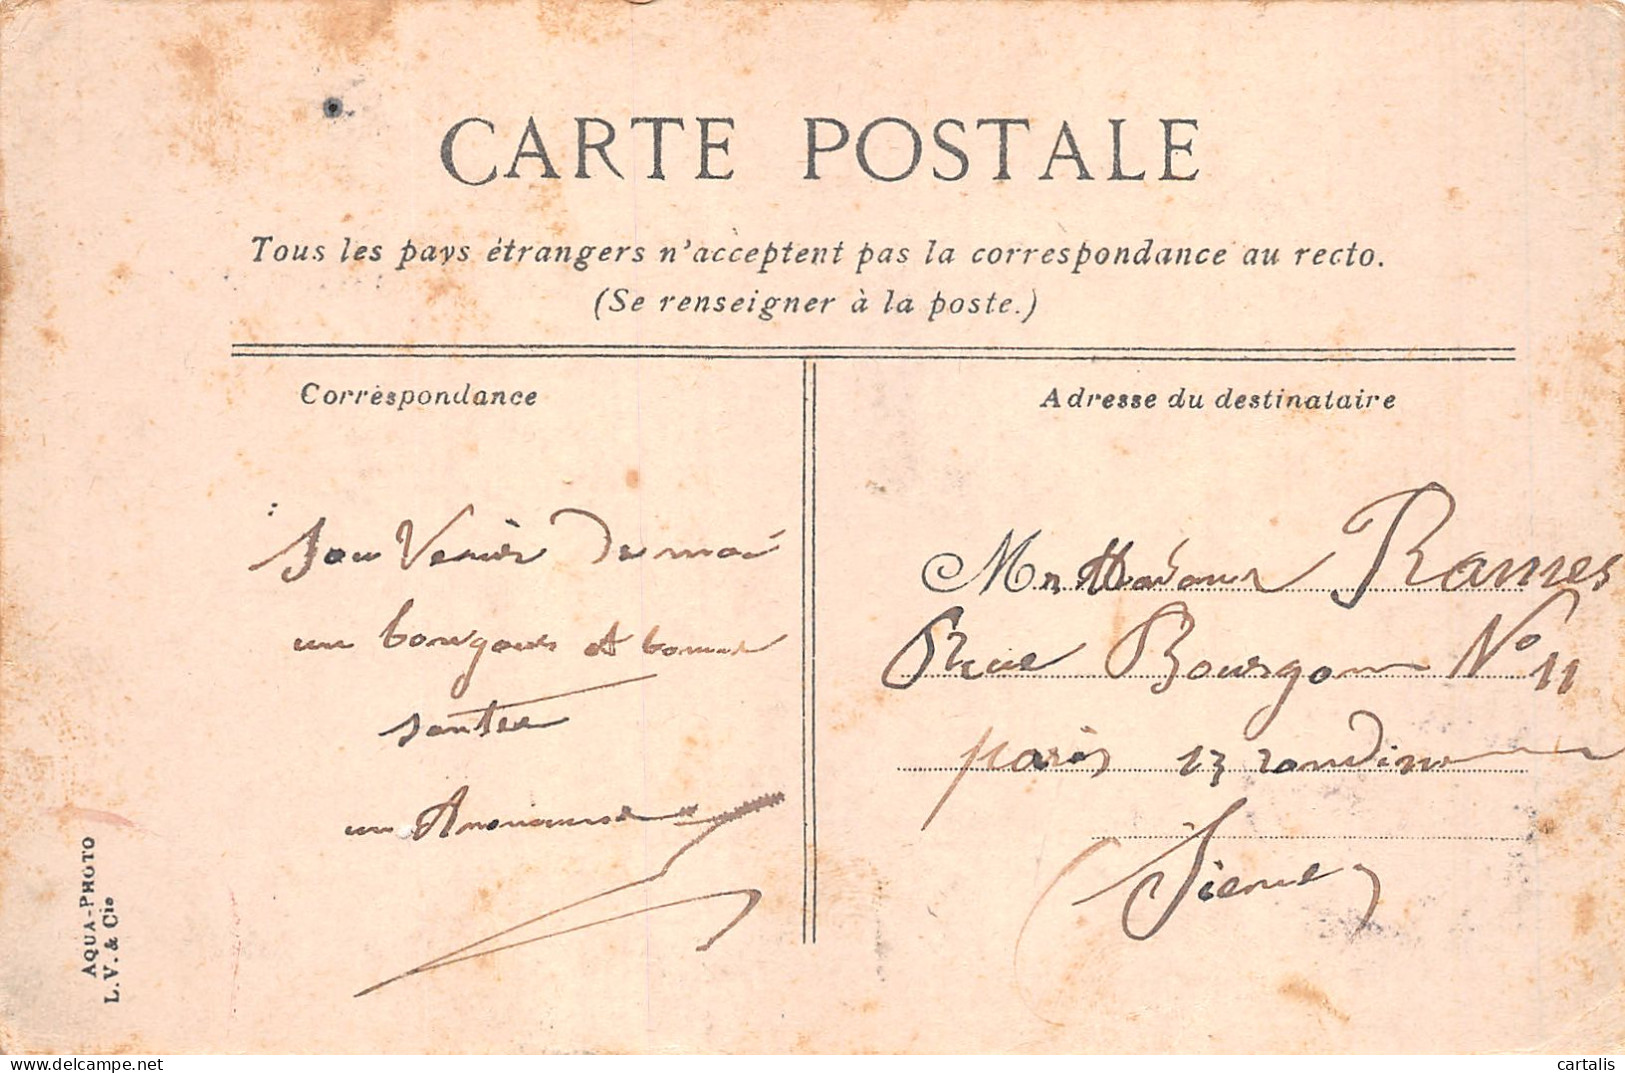 CARTE POSTALE
Tous les pays étrangers n'acceptent pas la correspondance au recto.
(Se renseigner à la poste.)
Correspondance
Sou Venir De moi
un bonjours et bonne
santee
un
Adresse du destinataire
Mr Rames
Rue Bourgon No 11
paris 13
AQUA-PHOTO
L.V. & Cie
cartalis